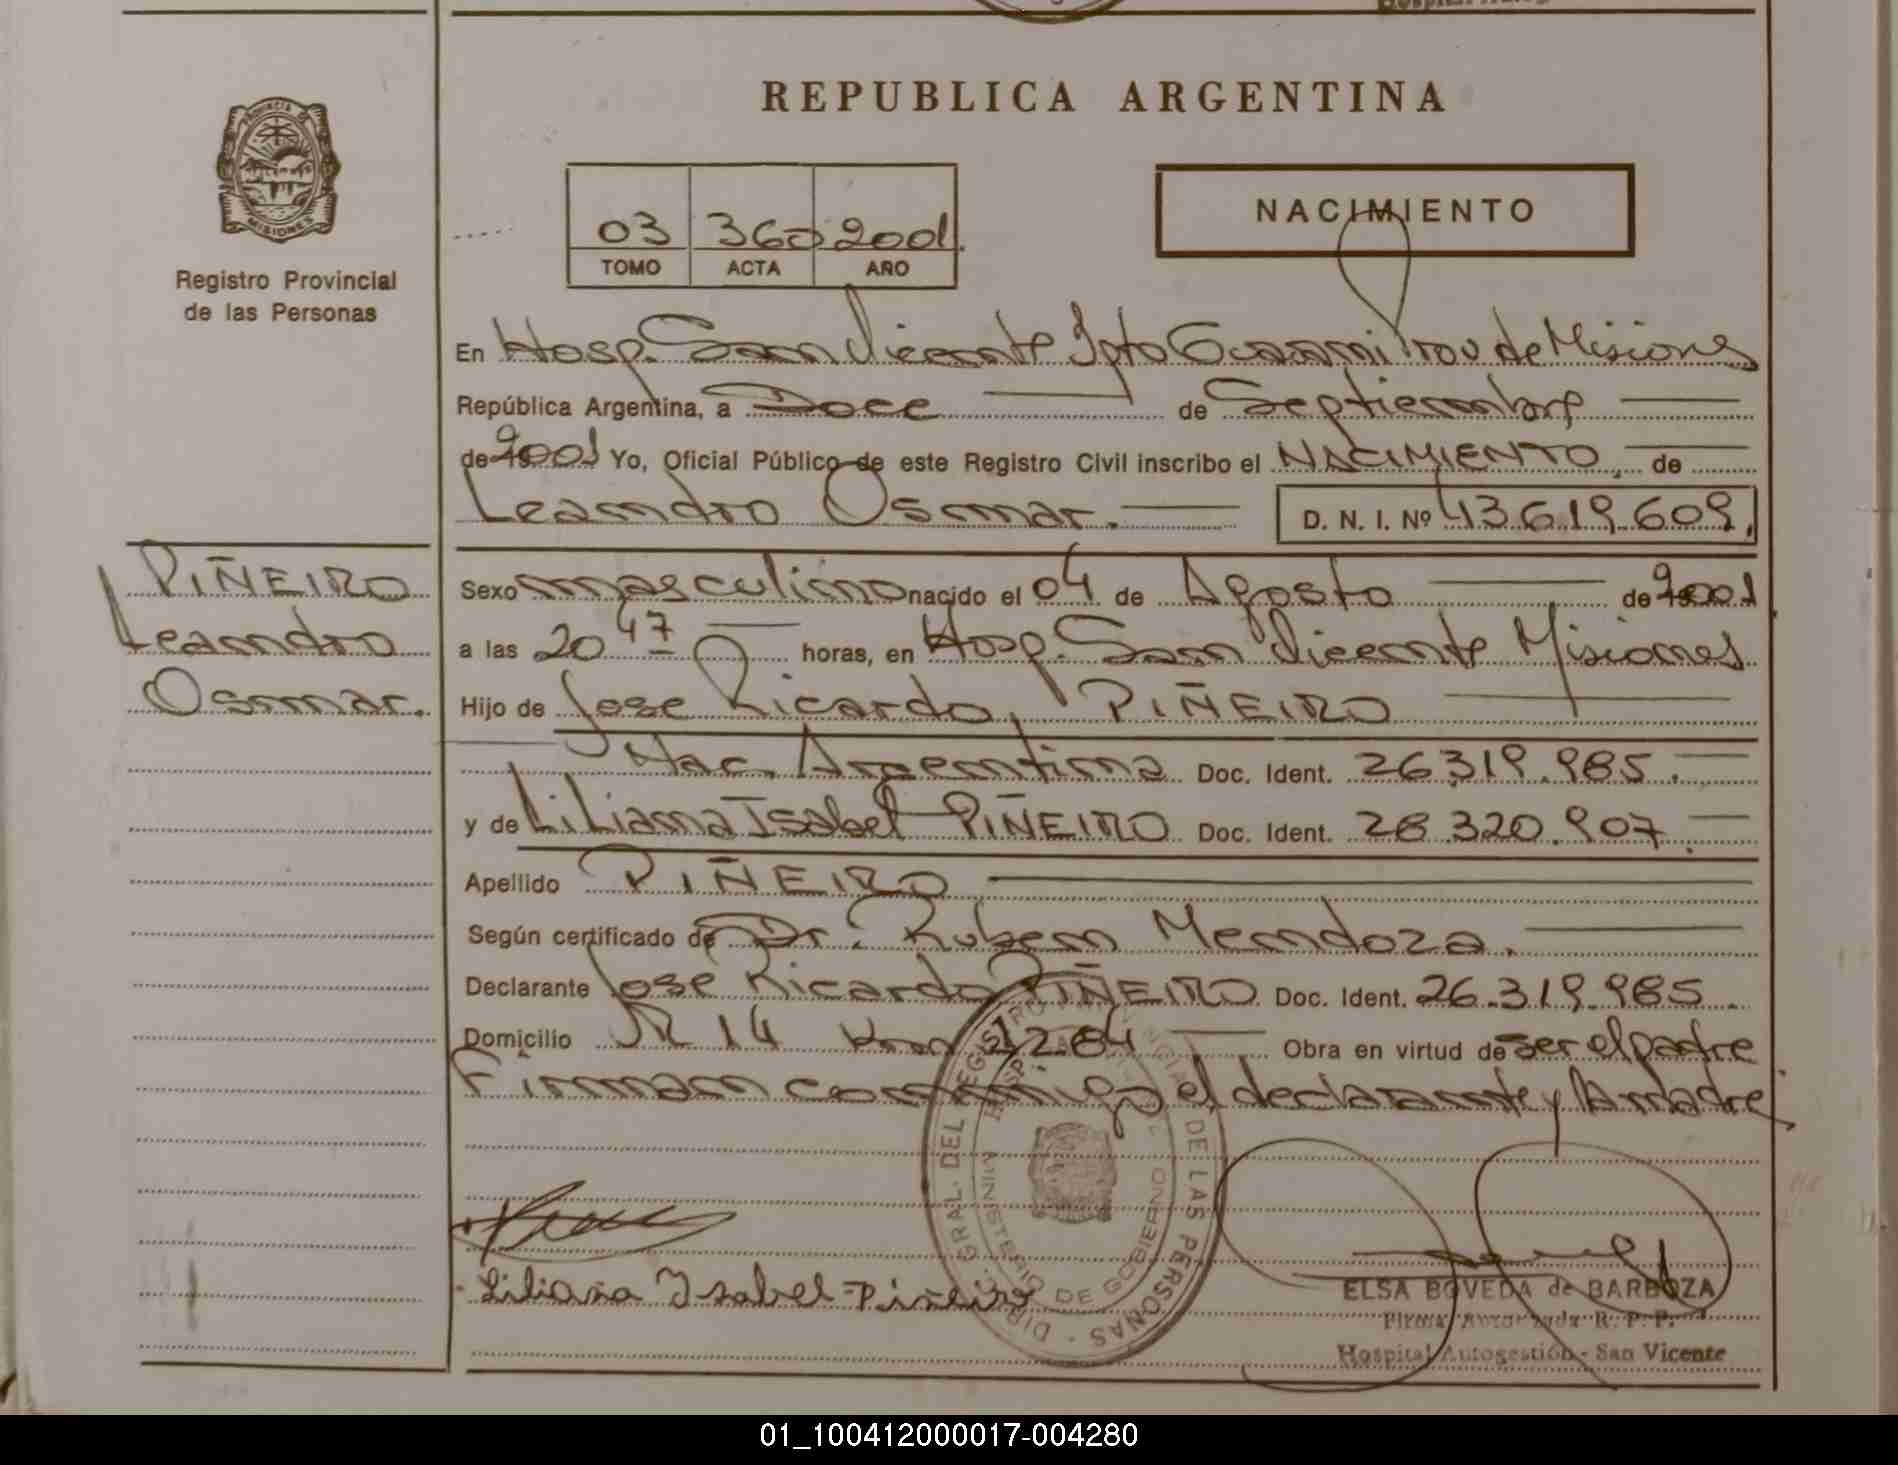 REPUBLICA ARGENTINA
PROVINCIA DE MISIONES
Registro Provincial
de las Personas
03 360 2001
TOMO ACTA AÑO
NACIMIENTO
En Hosp. San Vicente Dpto Guaraní Prov de Misiones
República Argentina, a Doce de Septiembre
de 2001 Yo, Oficial Público de este Registro Civil inscribo el NACIMIENTO, de
Leandro Osmar. D. N. I. Nº 43.619.609.
PIÑEIRO
Leandro
Osmar.
Sexo masculino nacido el 04 de Agosto de 2001
a las 20 47 horas, en Hosp. San Vicente Misiones
Hijo de Jose Ricardo, PIÑEIRO
Nac. Argentina Doc. Ident. 26.319.985.
y de Liliana Isabel PIÑEIRO Doc. Ident. 28.320.907.
Apellido PIÑEIRO
Según certificado de Dr. Ruben Mendoza.
Declarante Jose Ricardo PIÑEIRO Doc. Ident. 26.319.985.
Domicilio R 14 Km 1264 Obra en virtud de ser el padre
Firman conmigo el declarante y la madre
DIR. GRAL. DEL REGISTRO PROVINCIAL DE LAS PERSONAS
MINISTERIO DE GOBIERNO
Liliana Isabel Piñeiro
ELSA BOVEDA de BARBOZA
Firma Autorizada R. P. P.
Hospital Autogestión - San Vicente
01_100412000017-004280